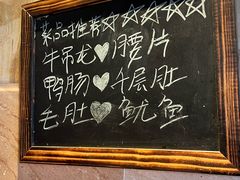 菜品推荐☆☆☆☆☆
牛吊龙♥腰片
鸭肠♥千层肚
毛肚♥鱿鱼